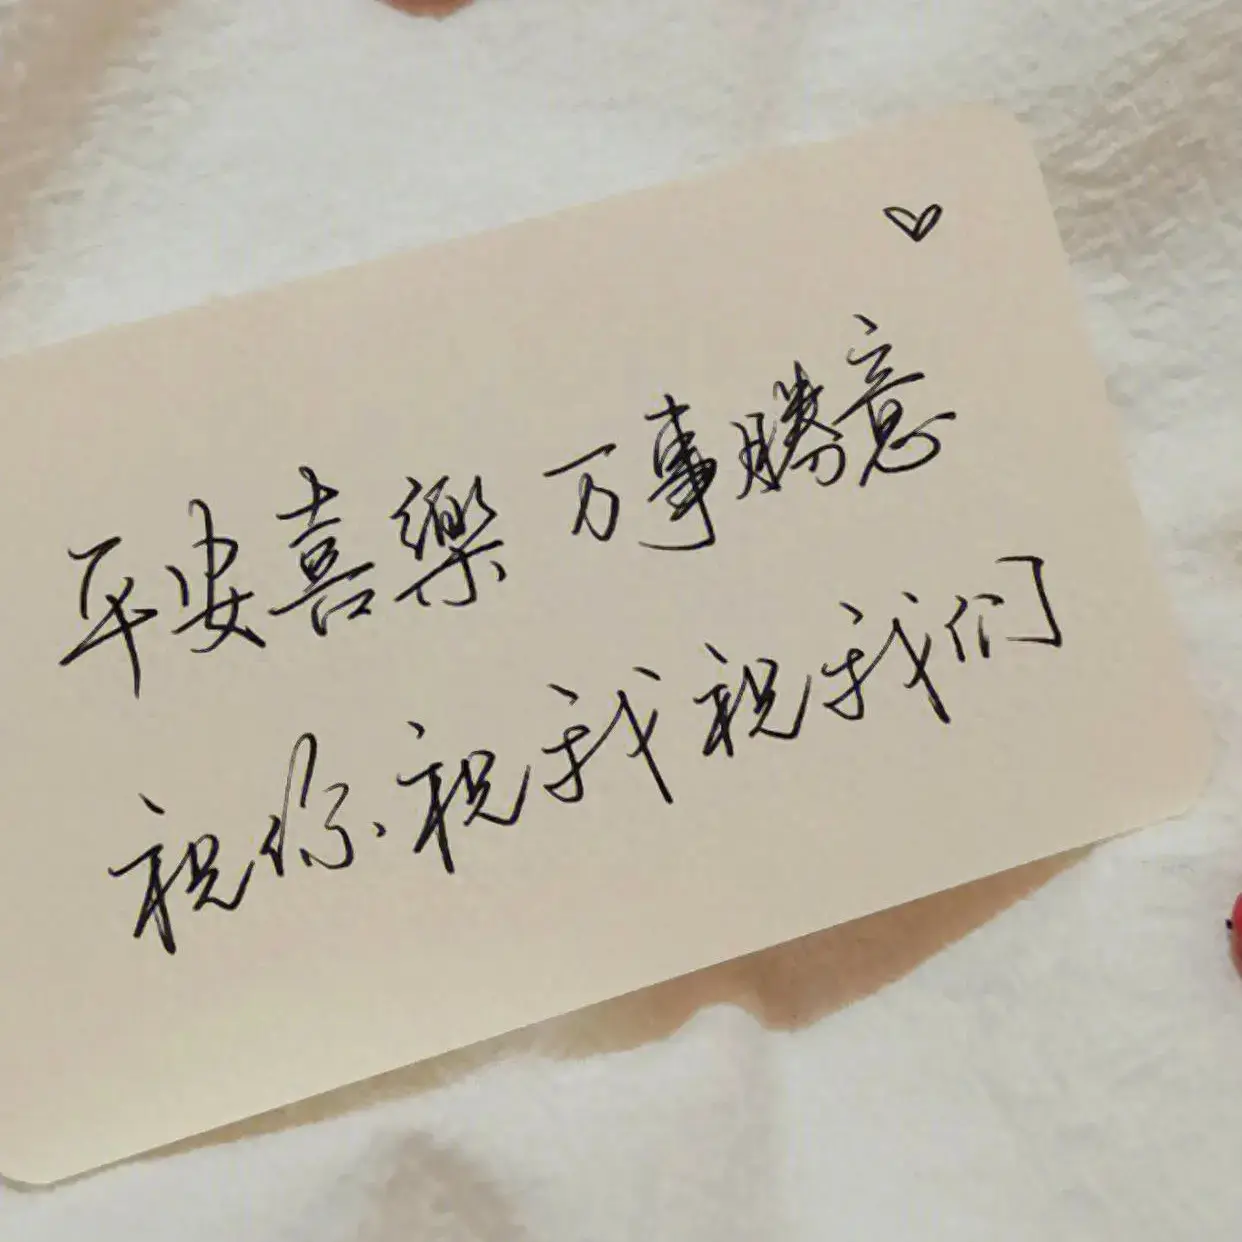 平安喜樂 万事勝意
祝你、祝我 祝我们